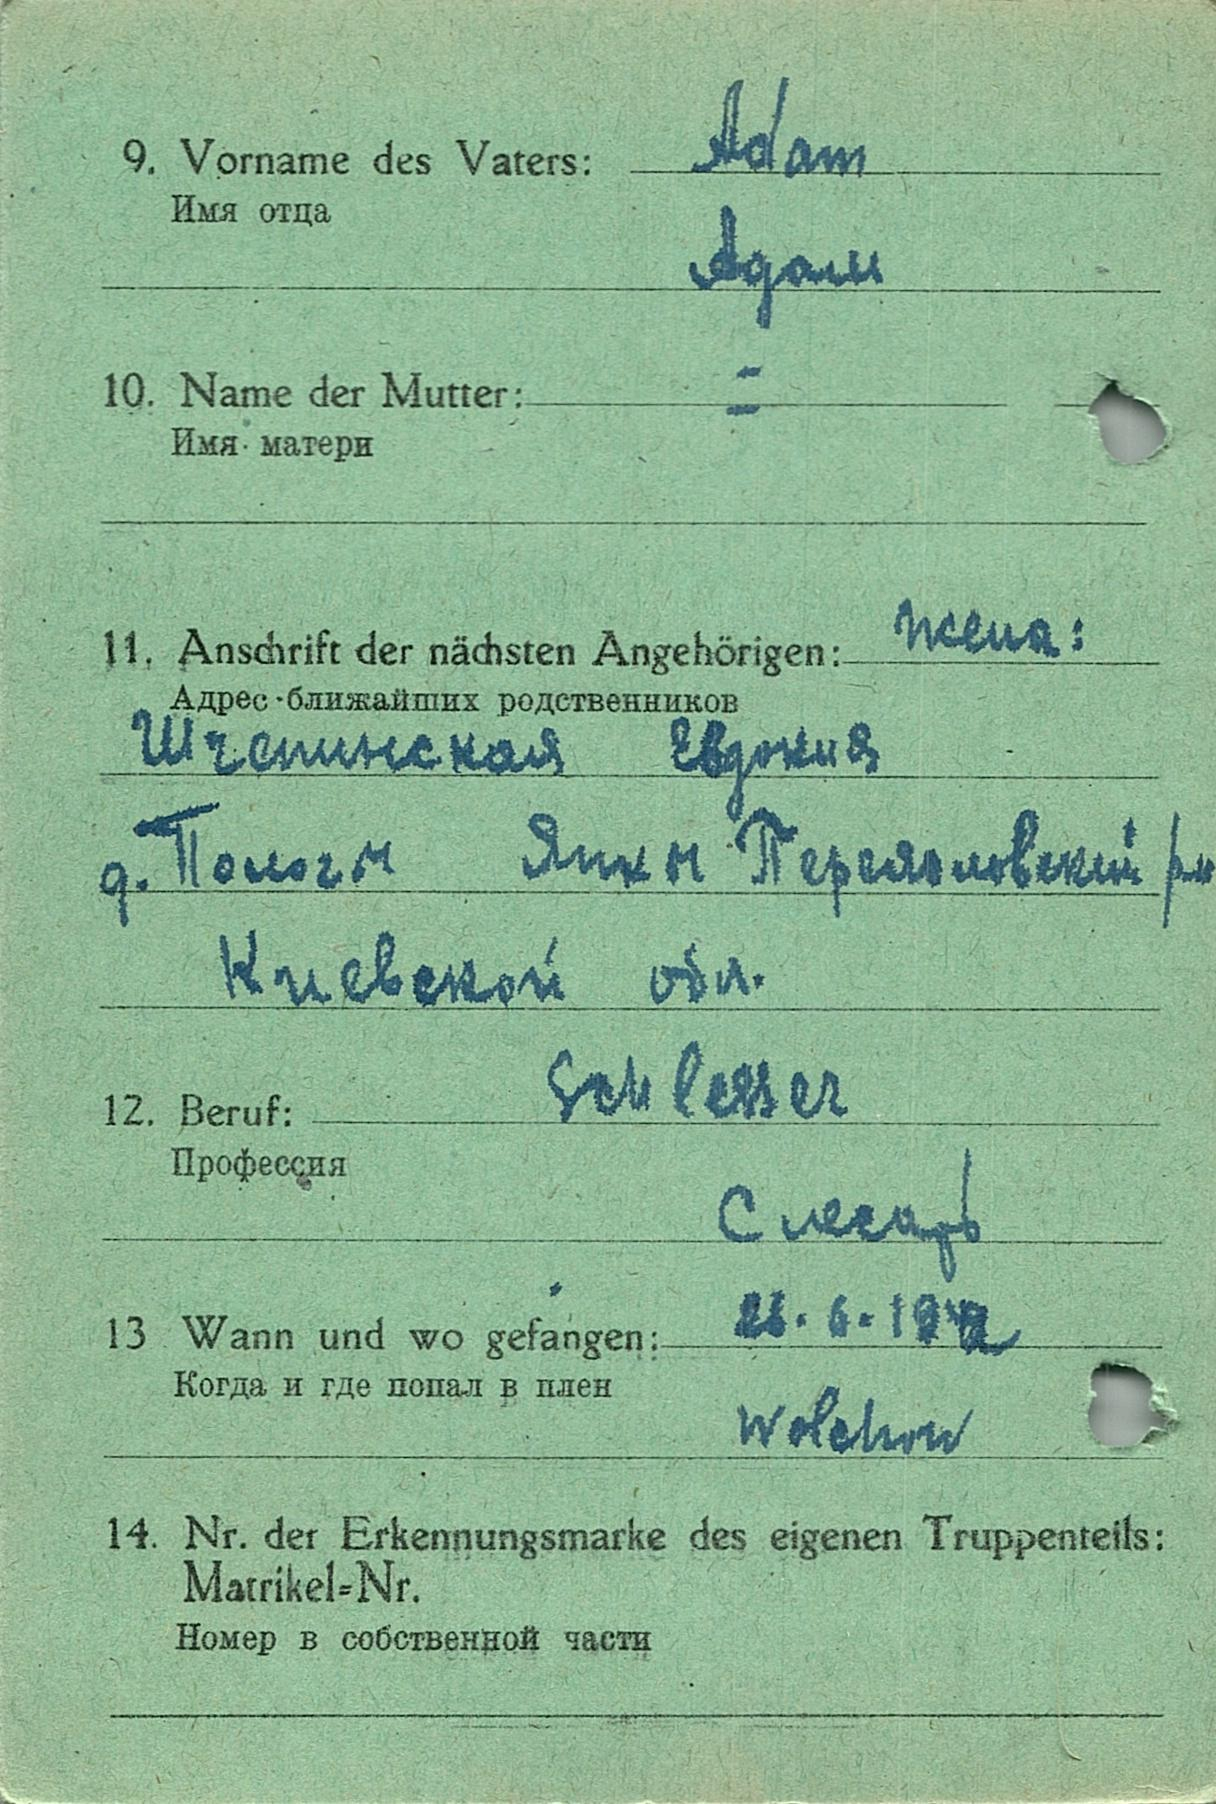 9. Vorname des Vaters: Adam
Имя отца
Адам
10. Name der Mutter: =
Имя матери
11. Anschrift der nächsten Angehörigen: жена:
Адрес ближайших родственников
Евдокия
д. Пологи Янки Переясловский р-н
Киевской обл.
12. Beruf: Schlesser
Профессия
Слесарь
13 Wann und wo gefangen: 6. 1942
Когда и где попал в плен
Wolchow
14. Nr. der Erkennungsmarke des eigenen Truppenteils:
Matrikel=Nr.
Номер в собственной части